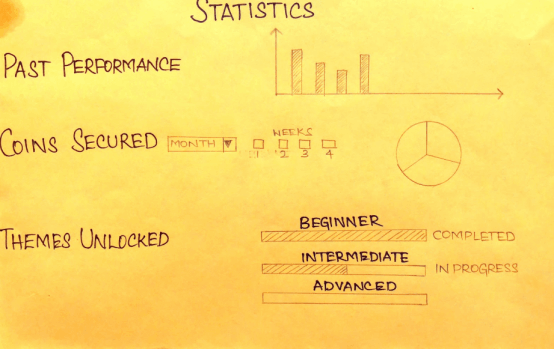 STATISTICS
PAST PERFORMANCE
COINS SECURED MONTH WEEKS
1 2 3 4
THEMES UNLOCKED
BEGINNER
COMPLETED
INTERMEDIATE
IN PROGRESS
ADVANCED